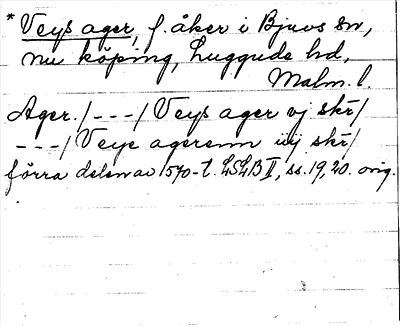 * Veys ager, f. åker i Bjuvs sn,
nu köping, Luggude hd,
Malm. l.
Ager. /---/ Veys ager vj skr/
---/ Veye agerenn iiij skr/
förra delen av 1570-t. LSLB II, ss. 19, 20. orig.